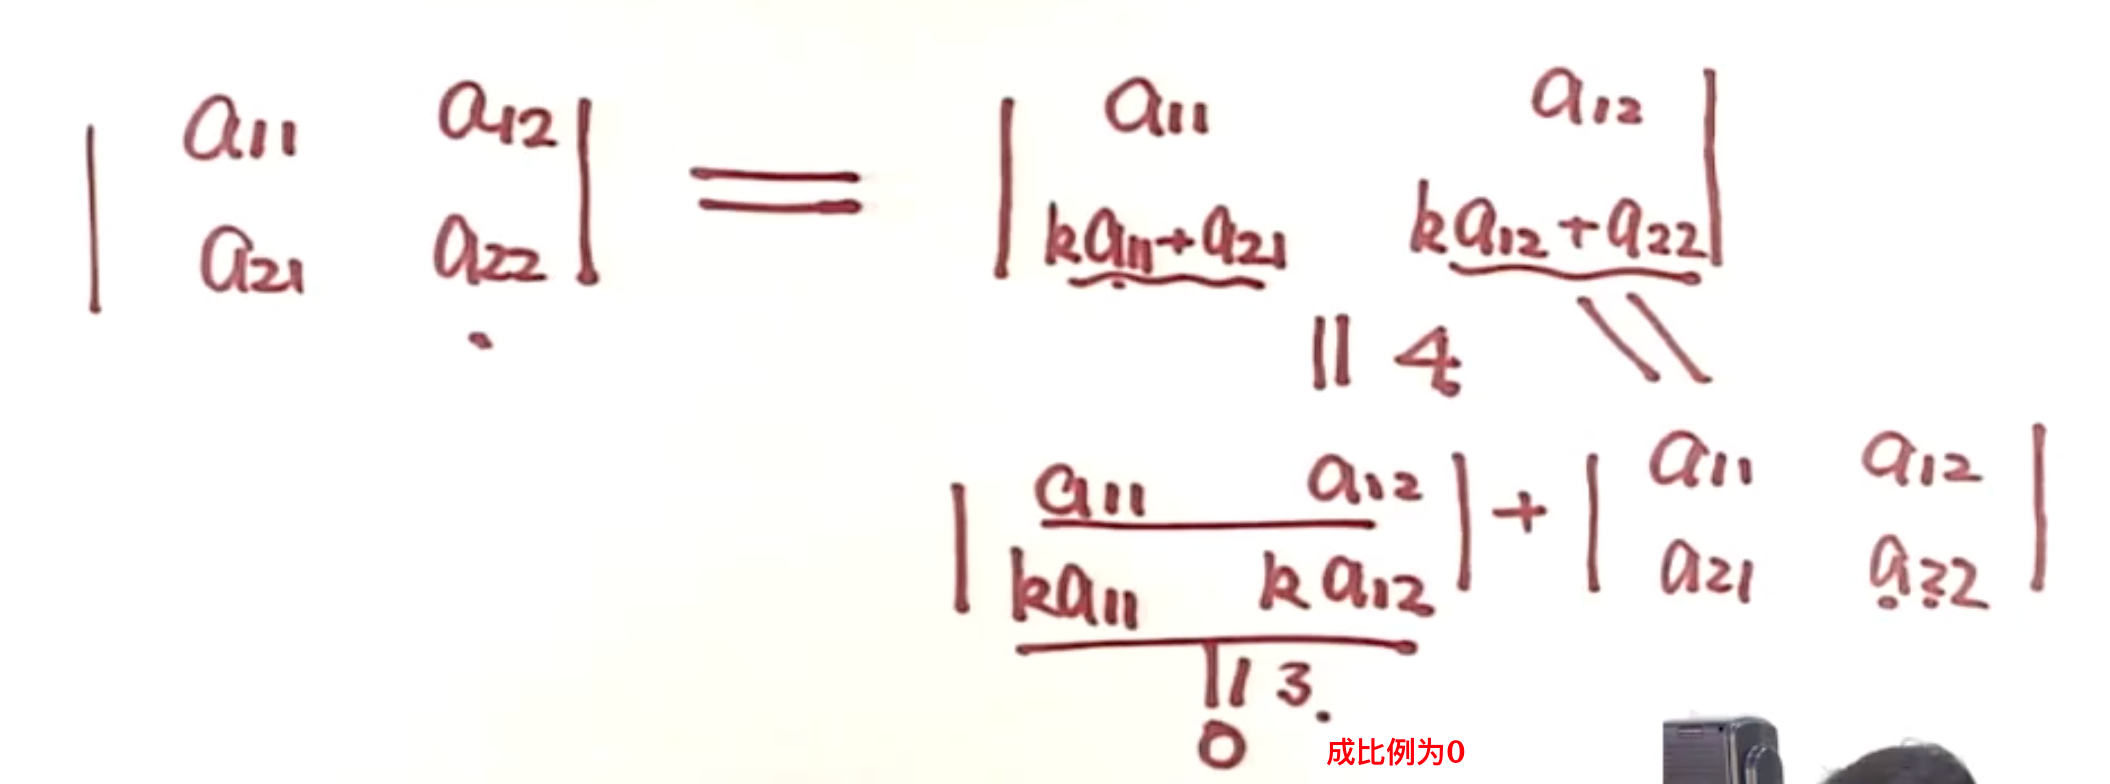 | a11 a12 | = | a11 a12 |
| a21 a22 | | ka11+a21 ka12+a22 |
|| 4 \\
| a11 a12 | + | a11 a12 |
| ka11 ka12 | | a21 a22 |
|| 3.
0 成比例为0